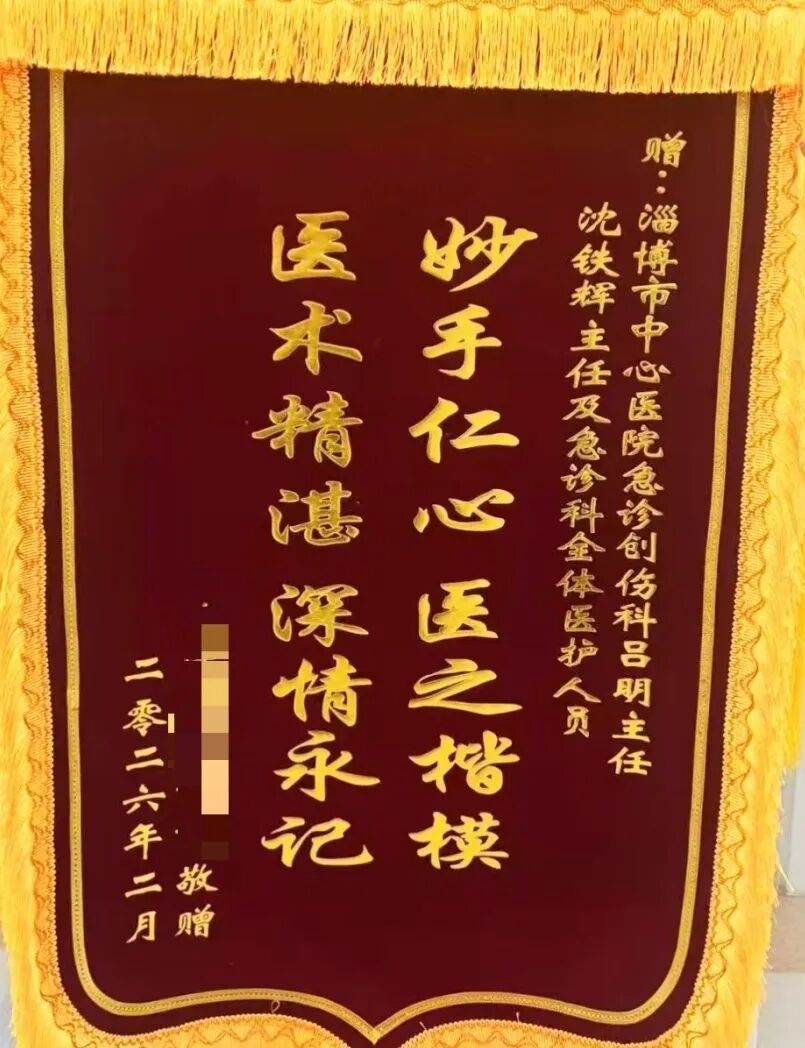 赠：淄博市中心医院急诊创伤科吕明主任
沈铁辉主任及急诊科全体医护人员
妙手仁心 医之楷模
医术精湛 深情永记
敬赠
二零二六年二月